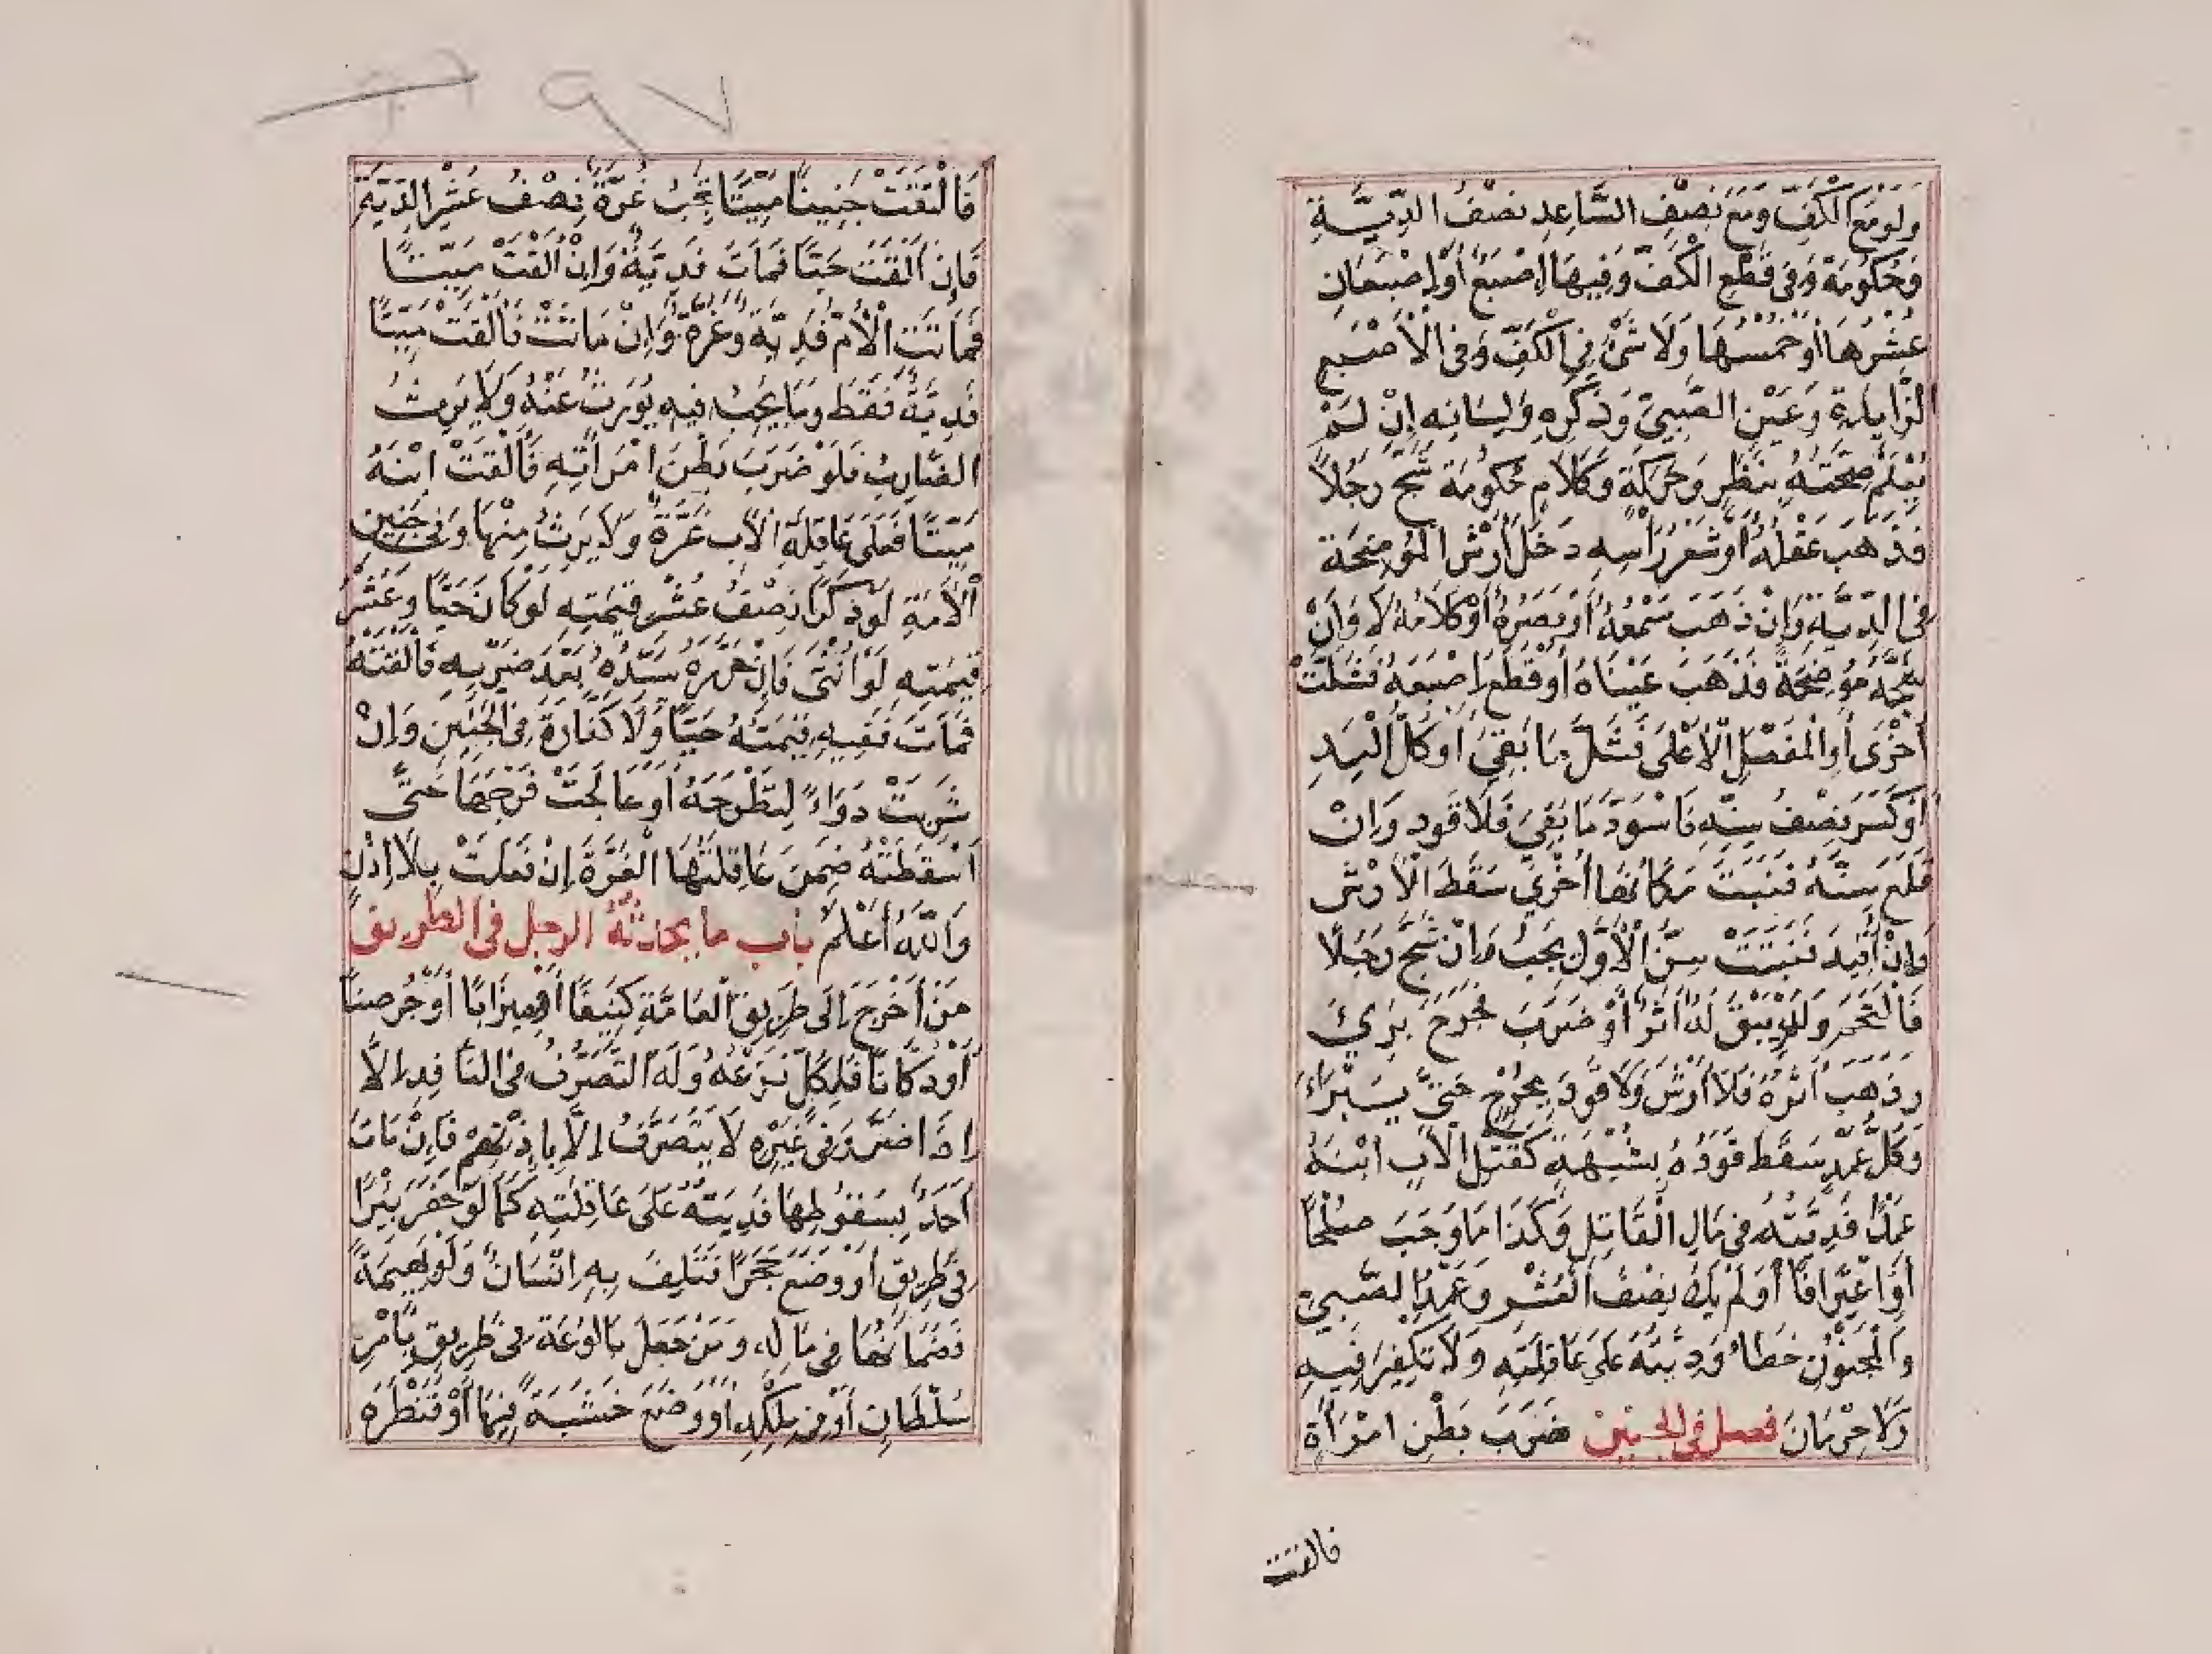 وَلَوْ مَعَ الْكَفِّ وَمَعَ نِصْفِ السَّاعِدِ نِصْفُ الدِّيَّةِ
وَحُكُومَةٌ وَفِي قَطْعِ الْكَفِّ وَفِيهَا إِصْبَعٌ أَوْ إِصْبَعَانِ
عُشْرُهَا أَوْ خُمْسُهَا وَلَا شَيْءَ فِي الْكَفِّ وَفِي الْأَصْبَعِ
الزَّايِدَةِ وَعَيْنِ الصَّبِيِّ وَذَكَرِهِ وَلِسَانِهِ إِنْ لَمْ
يُعْلَمْ صِحَّتُهُ بِنَظَرٍ وَحَرَكَةٍ وَكَلَامٍ حُكُومَةٌ شَجَّ رَجُلًا
فَذَهَبَ عَقْلُهُ أَوْ شَعْرُ رَأْسِهِ دَخَلَ أَرْشُ الْمُوضِحَةِ
فِي الدِّيَّةِ وَإِنْ ذَهَبَ سَمْعُهُ أَوْ بَصَرُهُ أَوْ كَلَامُهُ لَا وَإِنْ
شَجَّهُ مُوضِحَةً فَذَهَبَ عَيْنَاهُ أَوْ قَطَعَ إِصْبَعَهُ فَشَلَّتْ
أُخْرَى أَوِ الْمَفْصِلَ الْأَعْلَى فَشَلَّ مَا بَقِيَ أَوْ كُلُّ الْيَدِ
أَوْ كَسَرَ نِصْفَ سِنِّهِ فَاسْوَدَّ مَا بَقِيَ فَلَا قَوَدَ وَإِنْ
قَلَعَ سِنَّهُ فَنَبَتَ مَكَانَهَا أُخْرَى سَقَطَ الْأَرْشُ
وَإِنْ أُقِيدَ فَنَبَتَتْ سِنُّ الْأَوَّلِ يَجِبُ وَإِنْ شَجَّ رَجُلًا
فَالْتَحَمَ وَلَمْ يَبْقَ لَهُ أَثَرٌ أَوْ ضَرَبَ فَجَرَحَ بَرِئَ
وَذَهَبَ أَثَرُهُ فَلَا أَرْشَ وَلَا قَوَدَ بِجُرْحٍ حَتَّى يَبْرَاءَ
وَكُلُّ عَمْدٍ سَقَطَ قَوَدُهُ بِشُبْهَةٍ كَقَتْلِ الْأَبِ ابْنَهُ
عَمْدًا فَدِيَّتُهُ فِي مَالِ الْقَاتِلِ وَكَذَا مَا وَجَبَ صُلْحًا
أَوِ اعْتِرَافًا أَوْ لَمْ يَكُنْ نِصْفَ الْعُشْرِ وَعَمْدُ الصَّبِيِّ
وَالْمَجْنُونِ خَطَاءٌ وَدِيَتُهُ عَلَى عَاقِلَتِهِ وَلَا تَكْفِيرَ فِيهِ
وَلَا حِرْمَانَ فصل في الجنين ضَرَبَ بَطْنَ امْرَأَةٍ
فالقت
فَالْقَتْ جَنِينًا مَيِّتًا يَجِبُ غُرَّةٌ نِصْفُ عُشْرِ الدِّيَّةِ
فَإِنْ أَلْقَتْ حَيًّا فَمَاتَ فَدِيَّةٌ وَإِنْ أَلْقَتْ مَيِّتًا
فَمَاتَتِ الْأُمُّ فَدِيَّةٌ وَغُرَّةٌ وَإِنْ مَاتَتْ فَالْقَتْ مَيِّتًا
فَدِيَّةٌ فَقَطْ وَمَا يَجِبُ فِيهِ يُورَثُ عَنْهُ وَلَا يَرِثُ
الضَّارِبُ فَلَوْ ضَرَبَ بَطْنَ امْرَأَتِهِ فَأَلْقَتْ ابْنَهُ
مَيِّتًا فَعَلَى عَاقِلَةِ الْأَبِ غُرَّةٌ وَلَا يَرِثُ مِنْهَا وَفِي جَنِينِ
الْأَمَةِ لَوْ ذَكَرًا نِصْفُ عُشْرِ قِيمَتِهِ لَوْ كَانَ حَيًّا وَعُشْرُ
قِيمَتِهِ لَوْ أُنْثَى فَإِنْ حَرَّرَهُ سَيِّدُهُ بَعْدَ ضَرْبِهِ فَالْقَتْهُ
فَمَاتَ فَفِيهِ قِيمَتُهُ حَيًّا وَلَا كَفَّارَةَ فِي الْجَنِينِ وَإِنْ
شَرِبَتْ دَوَاءً لِتَطْرَحَهُ أَوْ عَالَجَتْ فَرْجَهَا حَتَّى
أَسْقَطَتْهُ ضَمِنَ عَاقِلَتُهَا الْغُرَّةَ إِنْ فَعَلَتْ بِلَا إِذْنٍ
وَاللّٰهُ أَعْلَمُ باب ما يحدثه الرجل في الطريق
مَنْ أَخْرَجَ إِلَى طَرِيقِ الْعَامَّةِ كَنِيفًا أَوْ مِيزَابًا أَوْ جُرْصُنًا
أَوْ دُكَّانًا فَلِكُلٍّ نَزْعُهُ وَلَهُ التَّصَرُّفُ فِي النَّافِذِ إِلَّا
إِذَا ضَرَّ وَفِي غَيْرِهِ لَا يَتَصَرَّفُ إِلَّا بِإِذْنِهِمْ فَإِنْ مَاتَ
أَحَدٌ بِسُقُوطِهَا فَدِيَتُهُ عَلَى عَاقِلَتِهِ كَمَا لَوْ حَفَرَ بِئْرًا
فِي طَرِيقٍ أَوْ وَضَعَ حَجَرًا فَتَلِفَ بِهِ إِنْسَانٌ وَلَوْ بَهِيمَةً
فَضَمَانُهَا فِي مَالِهِ وَمَنْ جَعَلَ بَالُوعَةً فِي طَرِيقٍ بِأَمْرِ
سُلْطَانٍ أَوْ فِي مِلْكِهِ أَوْ وَضَعَ خَشَبَةً فِيهَا أَوْ قَنْطَرَةً